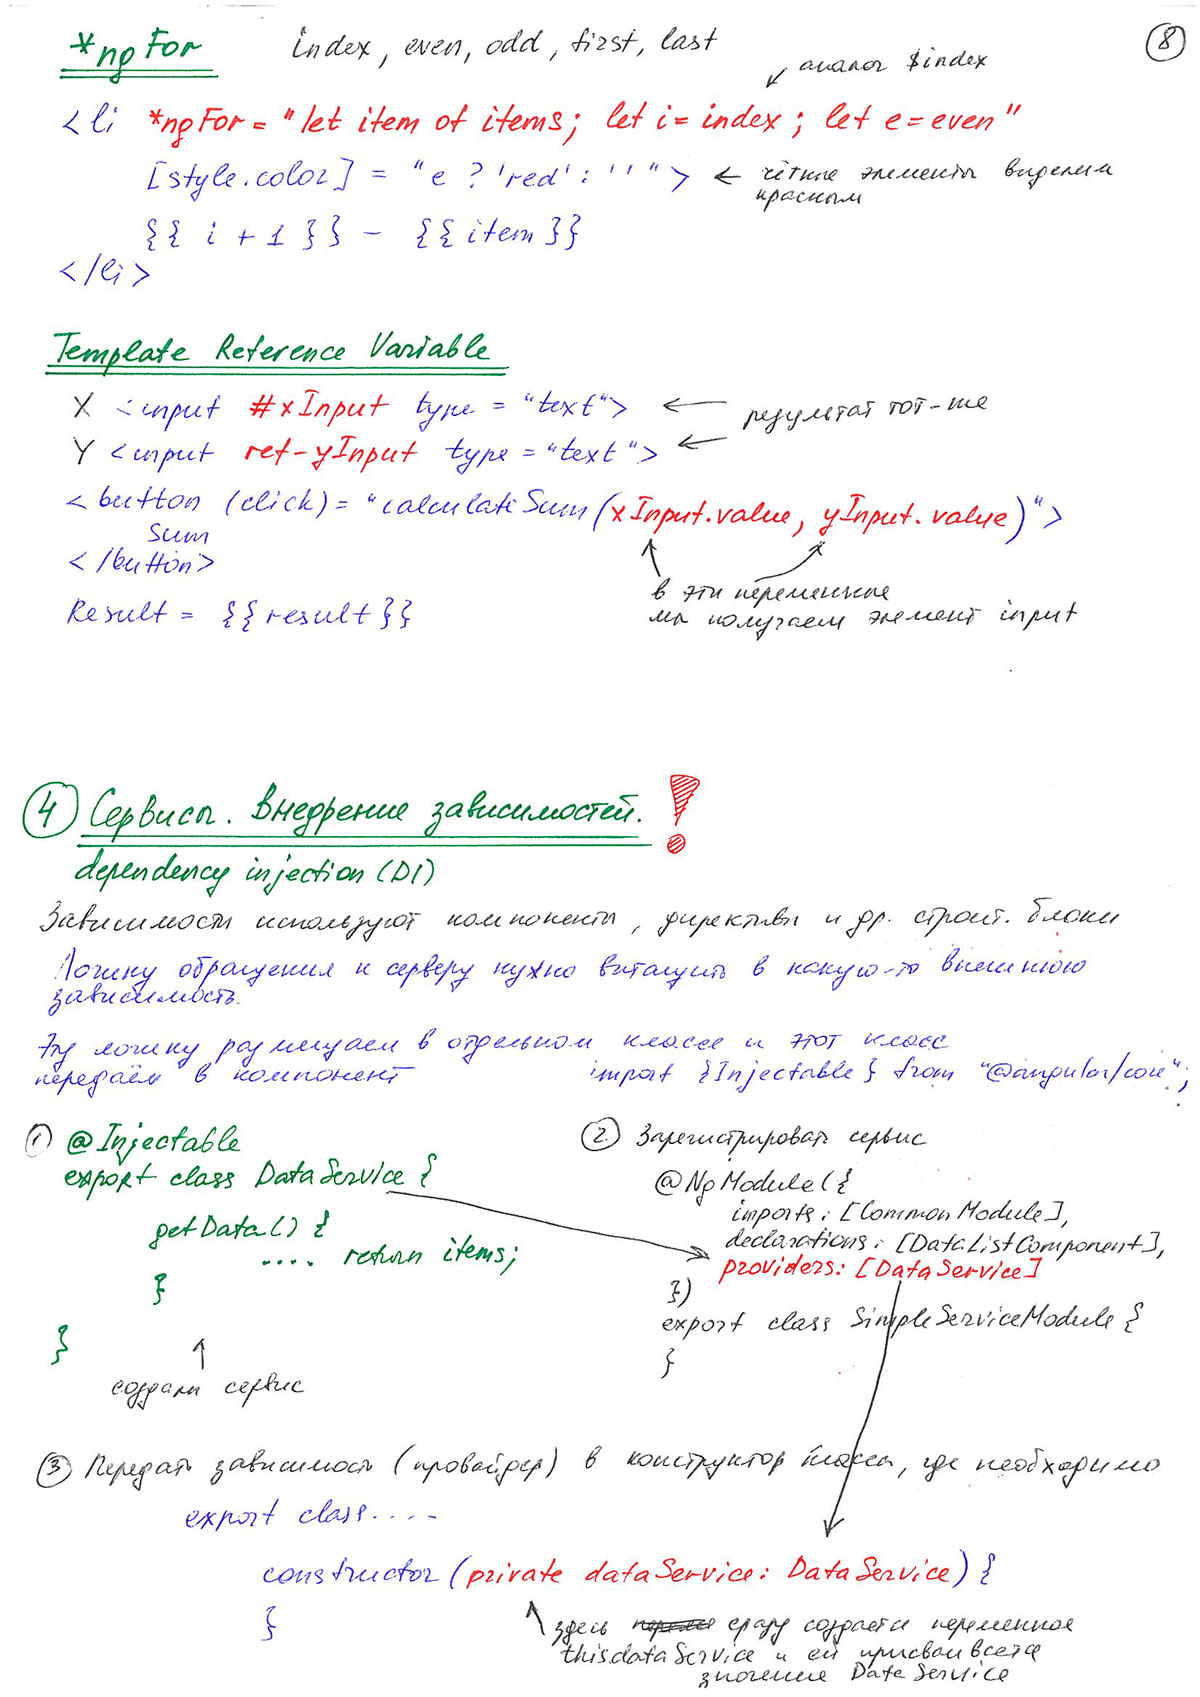 8
*ngFor index, even, odd, first, last
аналог $index
<li *ngFor = "let item of items; let i = index; let e = even"
[style.color] = "e ? 'red' : '' "> ← чётные элементы выделим
красным
{{ i + 1 }} - {{ item }}
</li>
Template Reference Variable
X <input #xInput type = "text"> ← результат тот-же
Y <input ref-yInput type = "text"> ←
<button (click) = "calculateSum(xInput.value, yInput.value)">
Sum
</button>
в эти переменные
мы получаем элемент input
Result = {{result}}
4 Сервисы. Внедрение зависимостей. !
dependency injection (DI)
Зависимости используют компоненты, директивы и др. строит. блоки
Логику обращения к серверу нужно вытащить в какую-то внешнюю
зависимость.
Эту логику размещаем в отдельном классе и этот класс
передаём в компонент
import {Injectable} from "@angular/core";
1) @Injectable
export class DataService {
getData() {
.... return items;
}
}
создали сервис
2) Зарегистрировать сервис
@NgModule({
imports: [CommonModule],
declarations: [DataListComponent],
providers: [DataService]
})
export class SimpleServiceModule {
}
3) Передать зависимость (провайдер) в конструктор класса, где необходимо
export class....
constructor (private dataService: DataService) {
}
здесь сразу создается переменное
thisdataService и ей присваивается
значение DataService